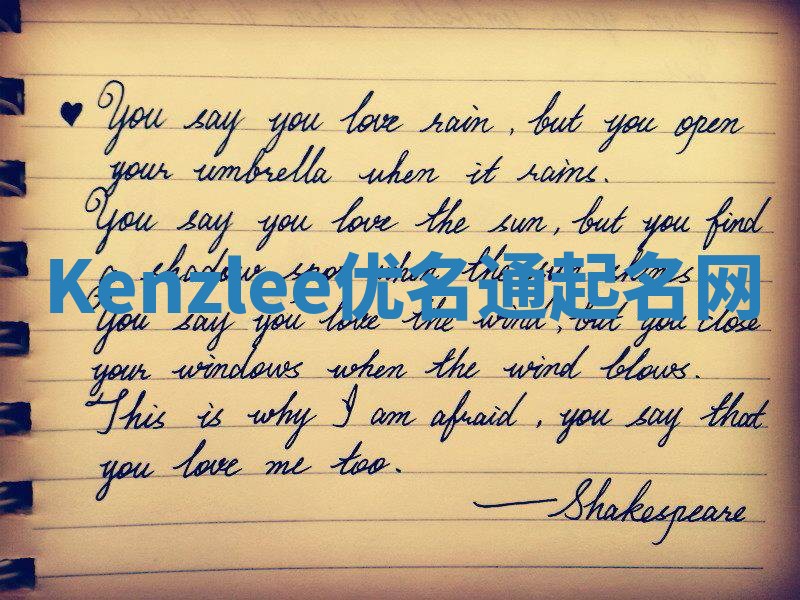 ♥ You say you love rain, but you open
your umbrella when it rains.
You say you love the sun, but you find
a shadow spot when the sun shines
Kenzlee优名通起名网
You say you love the wind, but you close
your windows when the wind blows.
This is why I am afraid, you say that
you love me too.
—Shakespeare